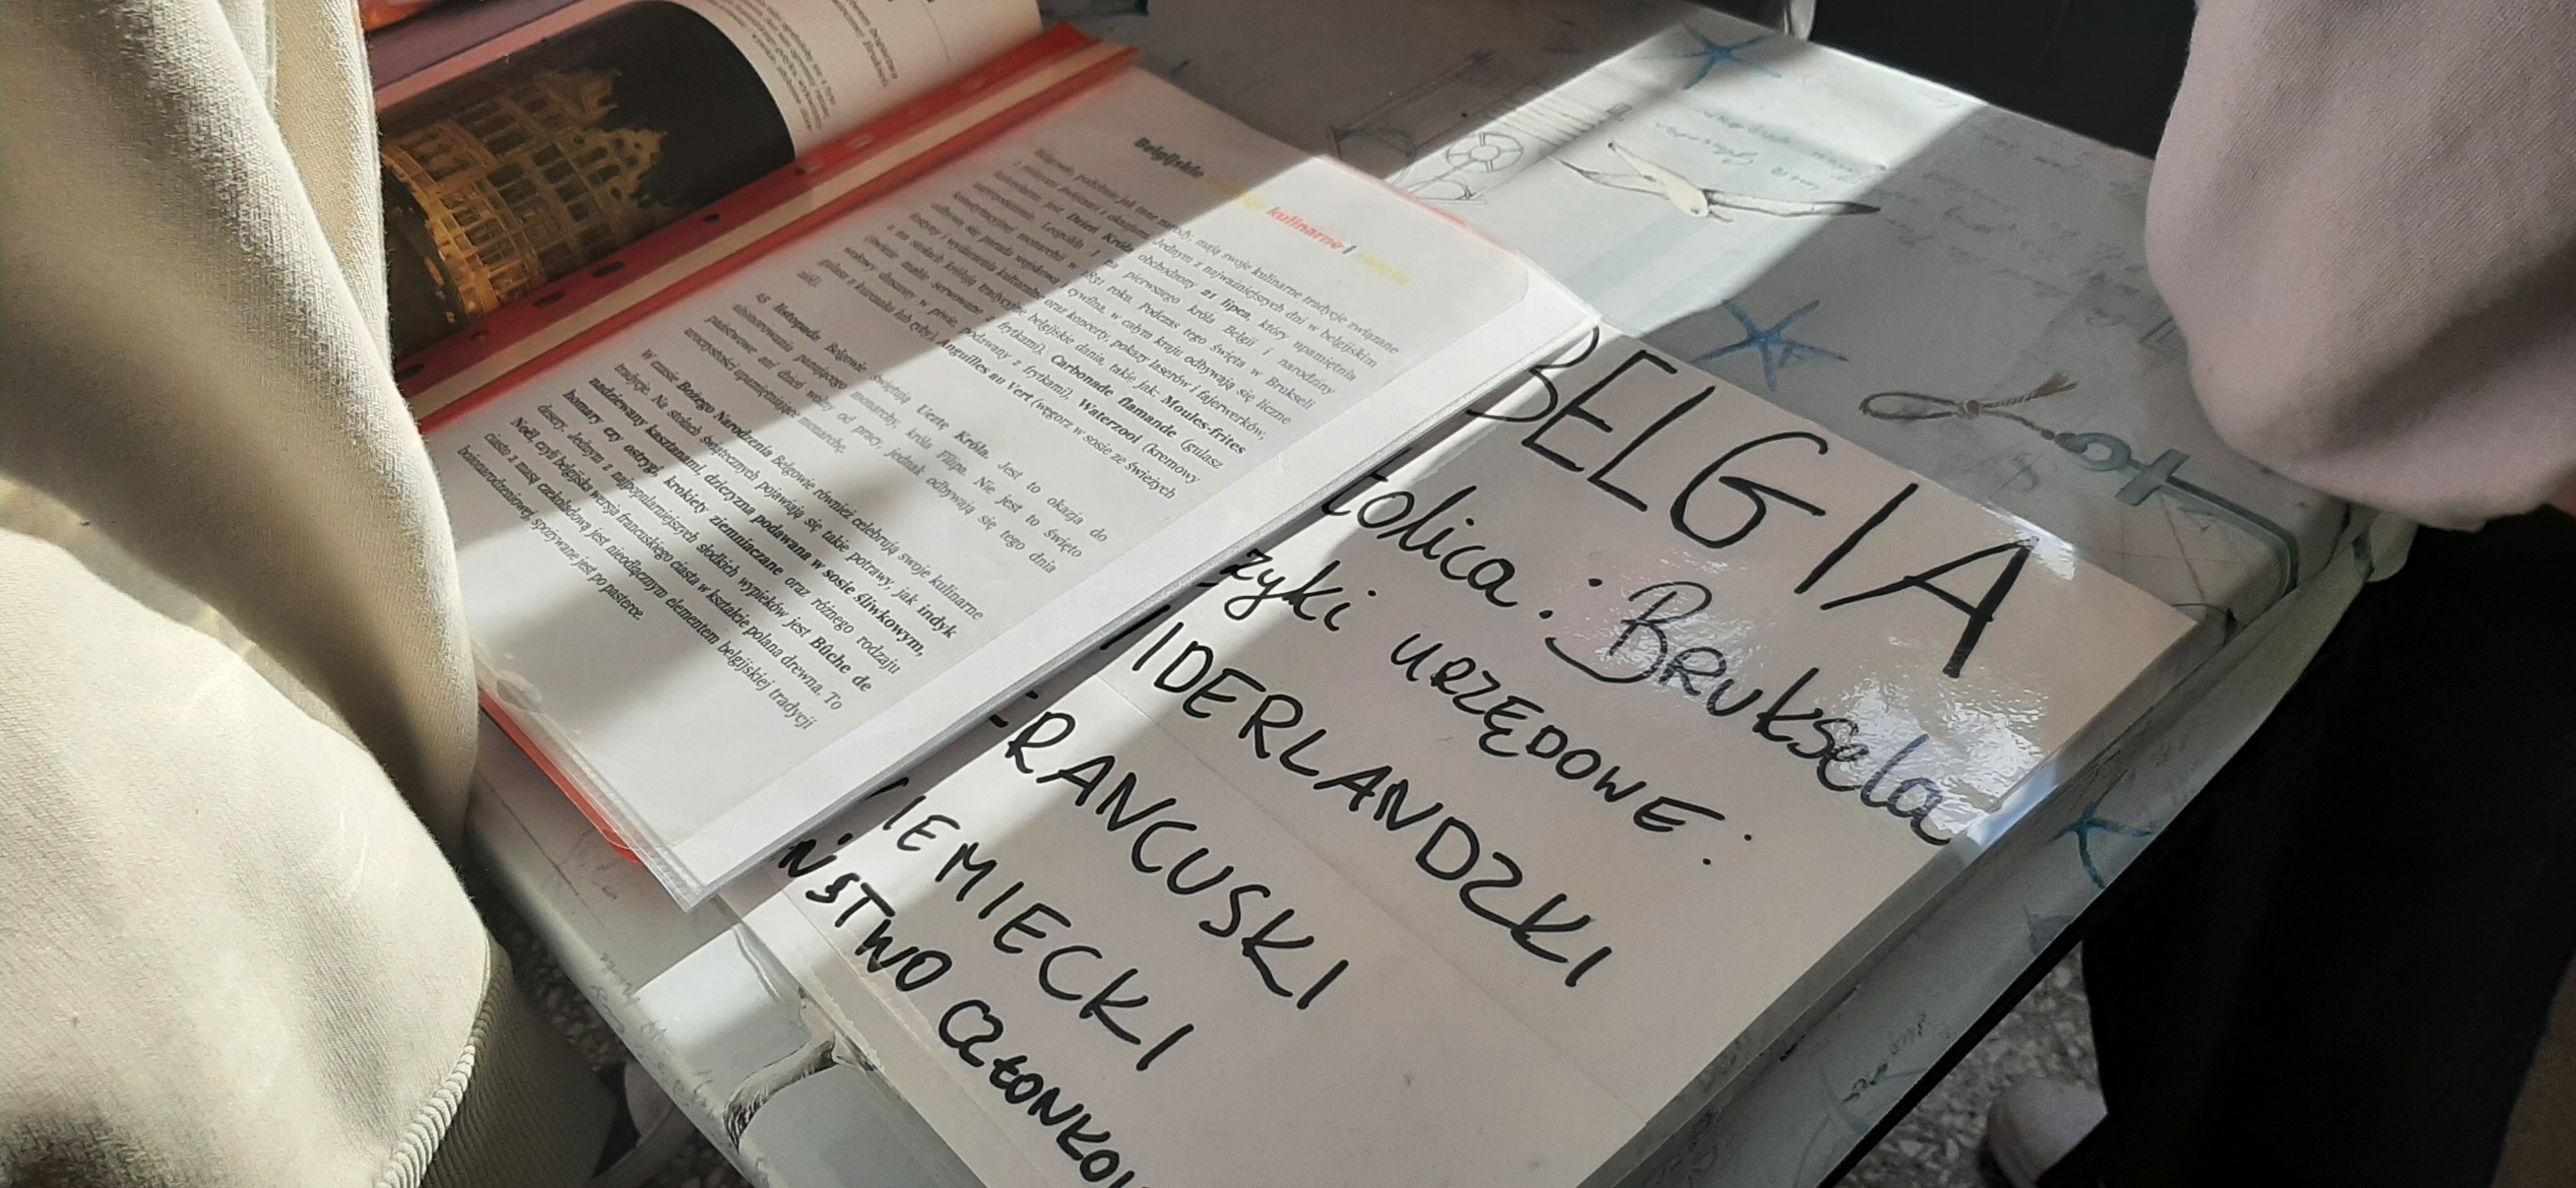 Belgijskie tradycje kulinarne i święta
Belgowie, podobnie jak inne narody, mają swoje kulinarne tradycje związane
z różnymi świętami i okazjami. Jednym z najważniejszych dni w belgijskim
kalendarzu jest Dzień Króla, obchodzony 21 lipca, który upamiętnia
zaprzysiężenie Leopolda I na pierwszego króla Belgii i narodziny
konstytucyjnej monarchii w 1831 roku. Podczas tego święta w Brukseli
odbywa się parada wojskowa i cywilna, w całym kraju odbywają się liczne
festyny i wydarzenia kulturalne oraz koncerty, pokazy laserów i fajerwerków,
a na stołach królują tradycyjne belgijskie dania, takie jak: Moules-frites
(świeże małże serwowane z frytkami), Carbonade flamande (gulasz
wołowy duszony w piwie, podawany z frytkami), Waterzooi (kremowy
gulasz z kurczaka lub ryby), Anguilles au Vert (węgorz w sosie ze świeżych
ziół).
15 listopada Belgowie świętują Ucztę Króla. Jest to okazja do
uhonorowania panującego monarchy, króla Filipa. Nie jest to święto
państwowe ani dzień wolny od pracy, jednak odbywają się tego dnia
uroczystości upamiętniające monarchę.
W czasie Bożego Narodzenia Belgowie również celebrują swoje kulinarne
tradycje. Na stołach świątecznych pojawiają się takie potrawy, jak indyk
nadziewany kasztanami, dziczyzna podawana w sosie śliwkowym,
homary czy ostrygi, krokiety ziemniaczane oraz różnego rodzaju
desery. Jednym z najpopularniejszych słodkich wypieków jest Bûche de
Noël, czyli belgijska wersja francuskiego ciasta w kształcie polana drewna. To
ciasto z masą czekoladową jest nieodłącznym elementem belgijskiej tradycji
bożonarodzeniowej, spożywane jest po pasterce.
BELGIA
tolica: Bruksela
zyki URZĘDOWE:
NIDERLANDZKI
FRANCUSKI
NIEMIECKI
ŃSTWO CZŁONKOW